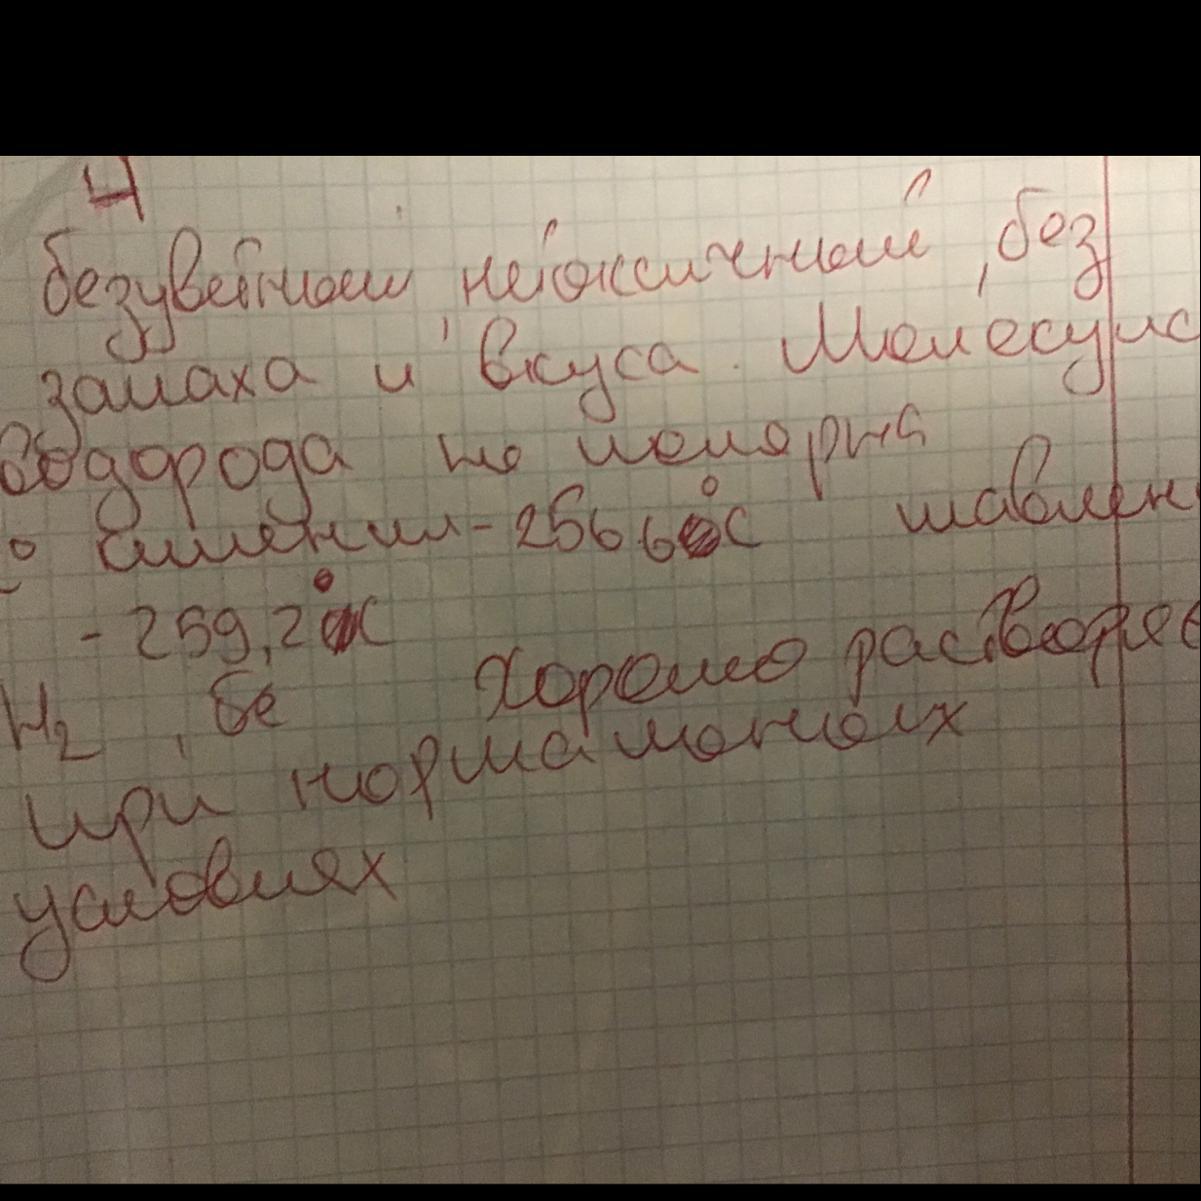 4
безцветный нетоксичный, без
запаха и вкуса. Молекула
водорода не полярна
кипении -256 6°C плавлен
- 259,2°C
H₂, бе Хорошо раство
при нормальных
условиях